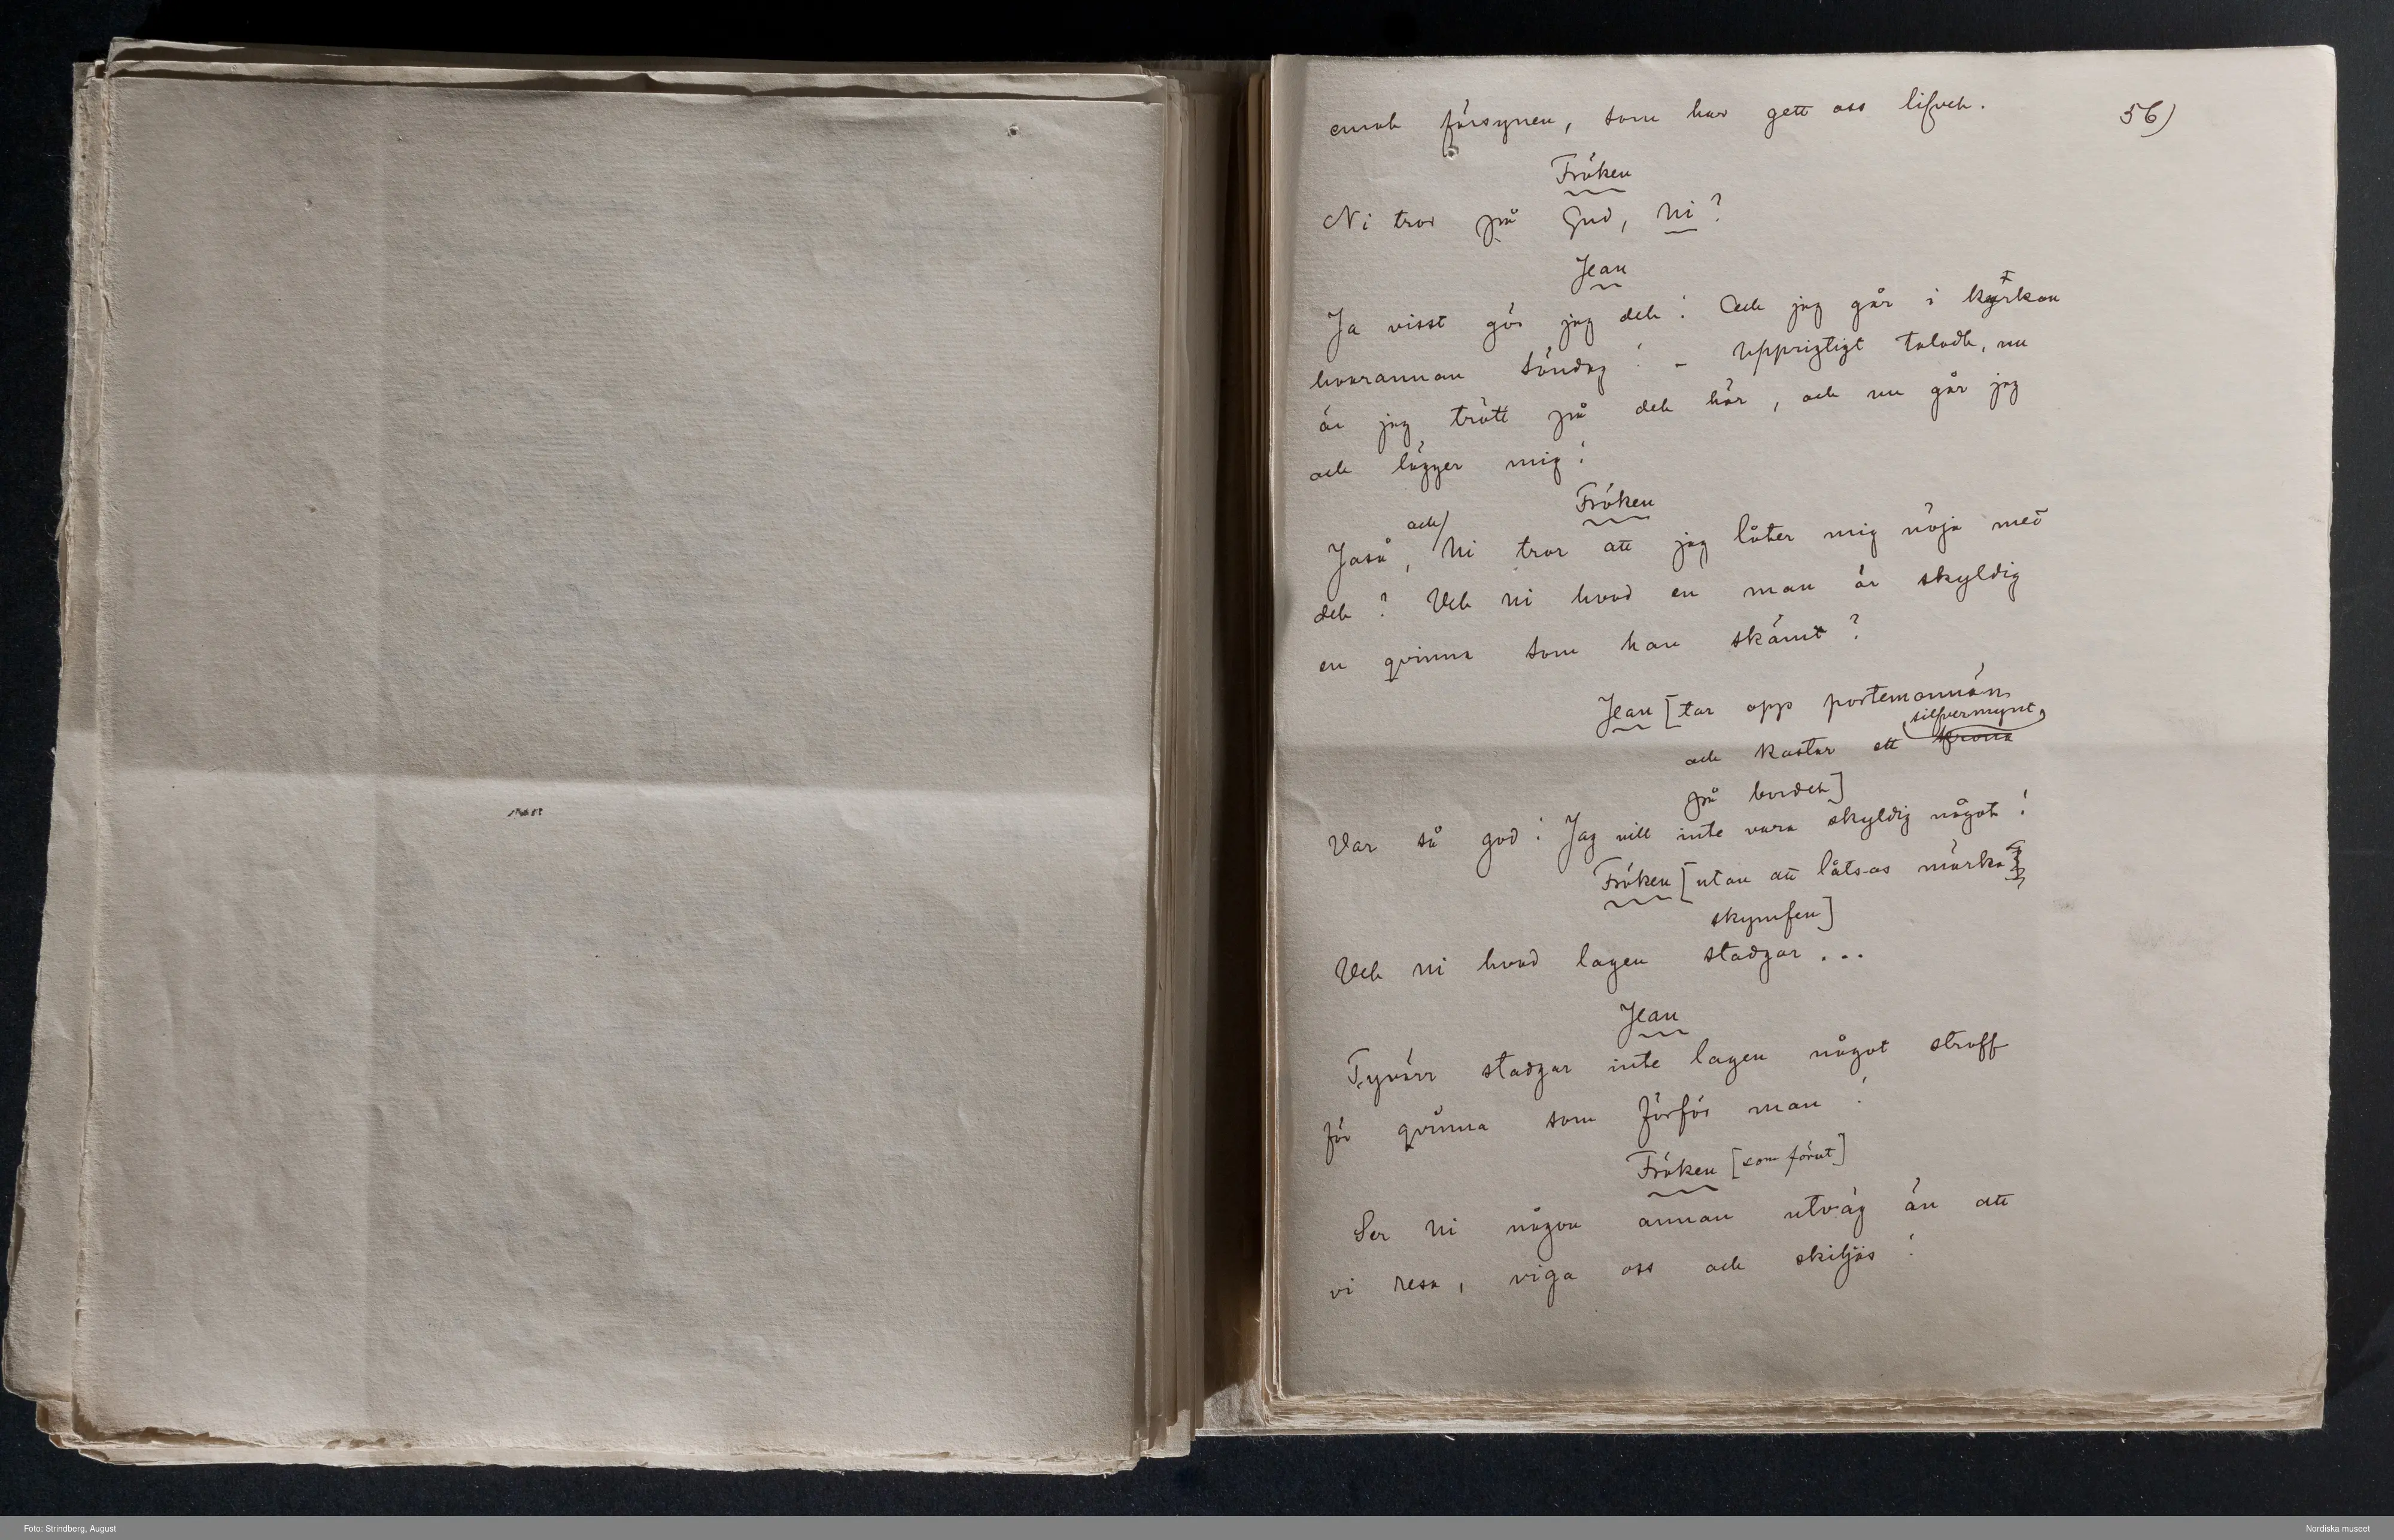 emot försynen, som har gett oss lifvet.
56)
Fröken
Ni tror på Gud, Ni?
Jean
Ja visst gör jag det! Och jag går i kyrkan
hvarannan söndag! – Uppriktigt taladt, nu
är jag trött på det här, och nu går jag
och lägger mig!
Fröken
Jaså, och Ni tror att jag låter mig nöja med
det? Vet ni hvad en man är skyldig
en qvinna som han skämt?
Jean [tar opp portemonnän
och kastar ett silfvermynt
på bordet]
Var så god! Jag vill inte vara skyldig något!
Fröken [utan att låtsas märka
skymfen]
Vet ni hvad lagen stadgar...
Jean
Tyvärr stadgar inte lagen något straff
för qvinna som förför man!
Fröken [som förut]
Ser Ni någon annan utväg än att
vi resa, viga oss och skiljas!
Foto: Strindberg, August
Nordiska museet